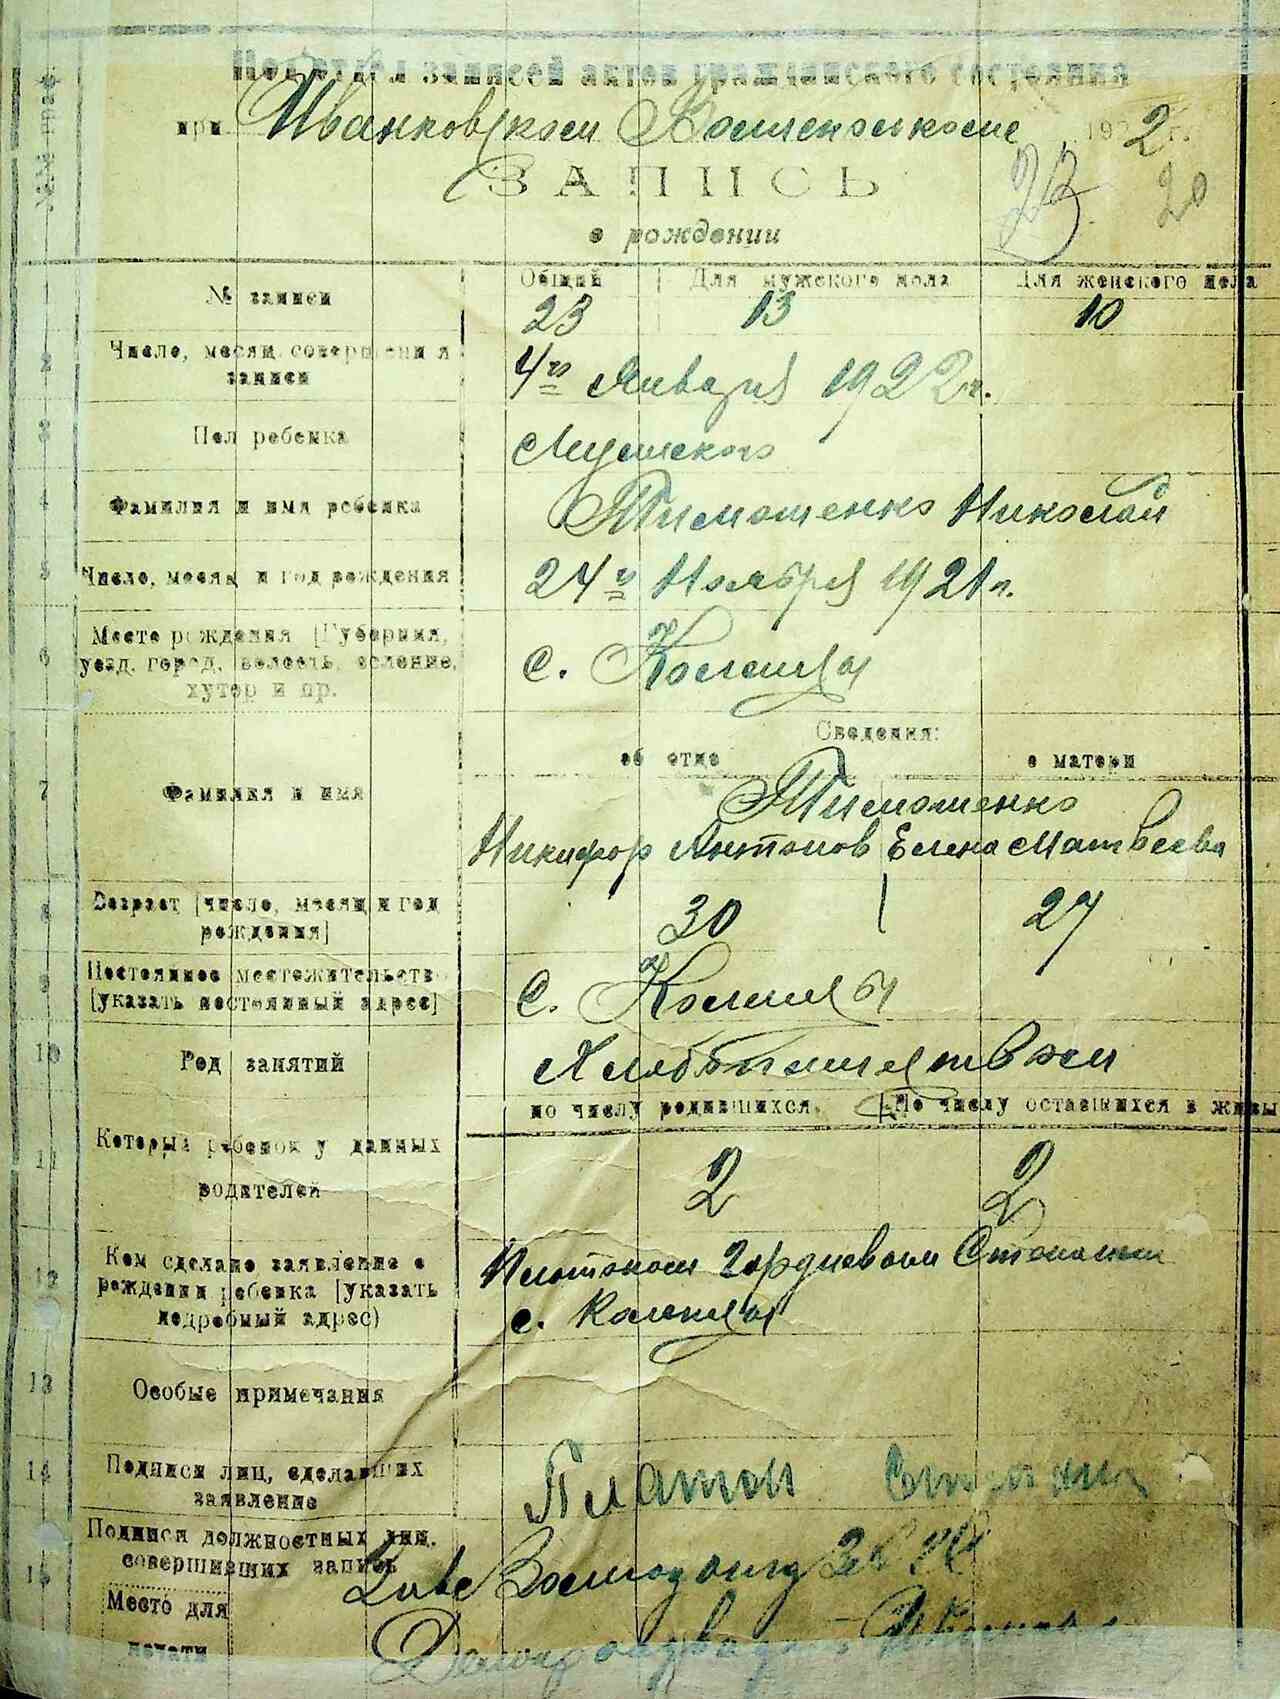 Подотдел записей актов гражданского состояния
при Иванковском 1922 г.
ЗАПИСЬ
23 20
о рождении
Общий Для мужского пола Для женского пола
1 № записи 23 13 10
2 Число, месяц совершения записи 4го Января 1922 г.
3 Пол ребенка Мужского
4 Фамилия и имя ребенка Тимошенко Николай
5 Число, месяц и год рождения 24го Ноября 1921 г.
6 Место рождения [Губерния,
уезд, город, волость, селение,
хутор и пр. с.
Сведения:
об отце о матери
7 Фамилия и имя Тимошенко
Никифор Антонов Елена Матвеева
8 Возраст [число, месяц и год
рождения] 30 27
9 Постоянное местожительство
[указать постоянный адрес] с.
10 Род занятий Хлебопашеством
по числу родившихся. По числу оставшихся в живых
11 Который ребенок у данных
родителей 2 2
12 Кем сделано заявление о
рождении ребенка [указать
подробный адрес) Платоном Гордиевым
с.
13 Особые примечания
14 Подписи лиц, сделавших
заявление Платон
15 Подписи должностных лиц,
совершивших запись
Место для
печати